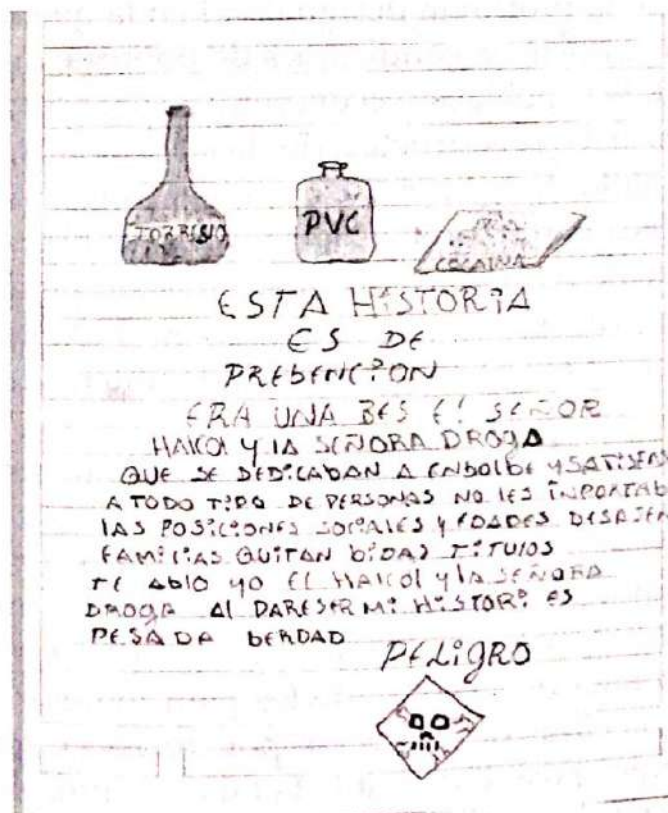 TORRESIO
PVC
COCAINA
ESTA HISTORIA
ES DE
PREBENCION
ERA UNA BES El SEÑOR
HAlCOl Y lA SEÑORA DROGA
QUE SE DEDICABAN A ENBOLBE Y SATISFAS
A TODO TIPO DE PERSONAS NO lES INPORTAB
lAS POSICIONES SOCIAlES Y EDADES
FAMIlIAS QUITAN BIDAS TITUlOS
TE ABlO YO El HAlCOl Y lA SEÑORA
DROGA Al PARESER MI HISTORI ES
PESADA BERDAD
PELIGRO